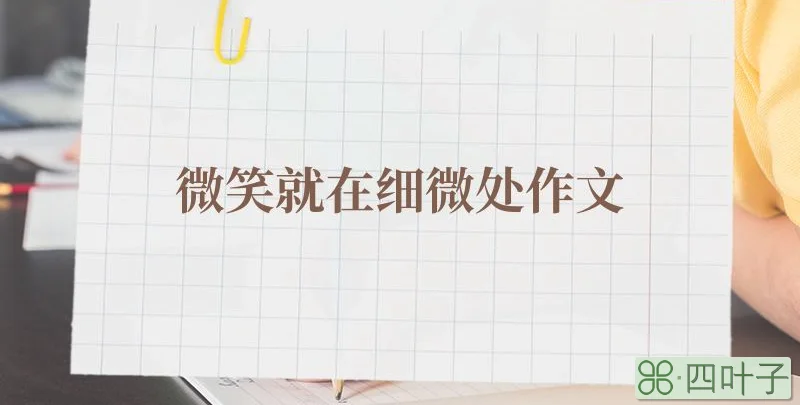 微笑就在细微处作文
四叶子